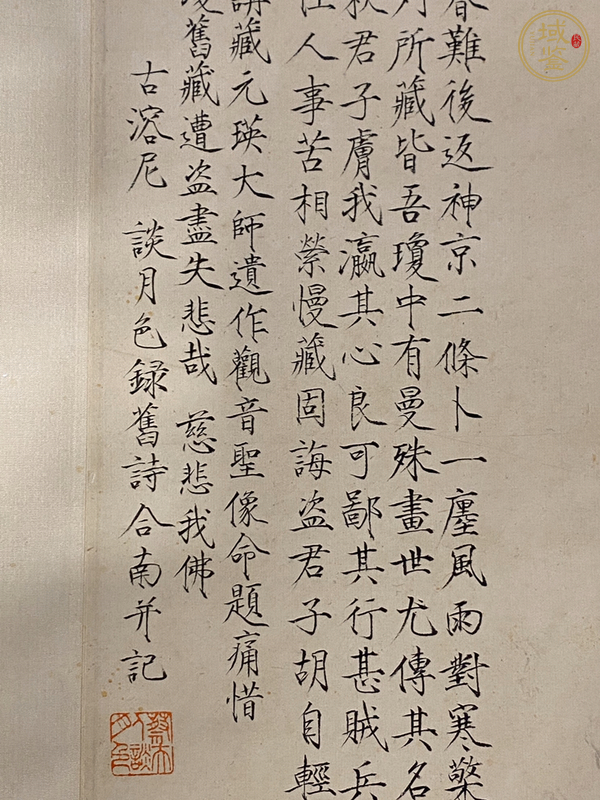 難後返神京二條卜一廛風雨對寒檠
所藏皆吾瓊中有曼殊畫世尤傳其名
君子膚我瀛其心良可鄙其行甚賊兵
人事苦相縈慢藏固誨盜君子胡自輕
藏元瑛大師遺作觀音聖像命題痛惜
舊藏遭盜盡失悲哉 慈悲我佛
古溶尼 談月色録舊詩合南并記
蔡夫人談月色
域鑒